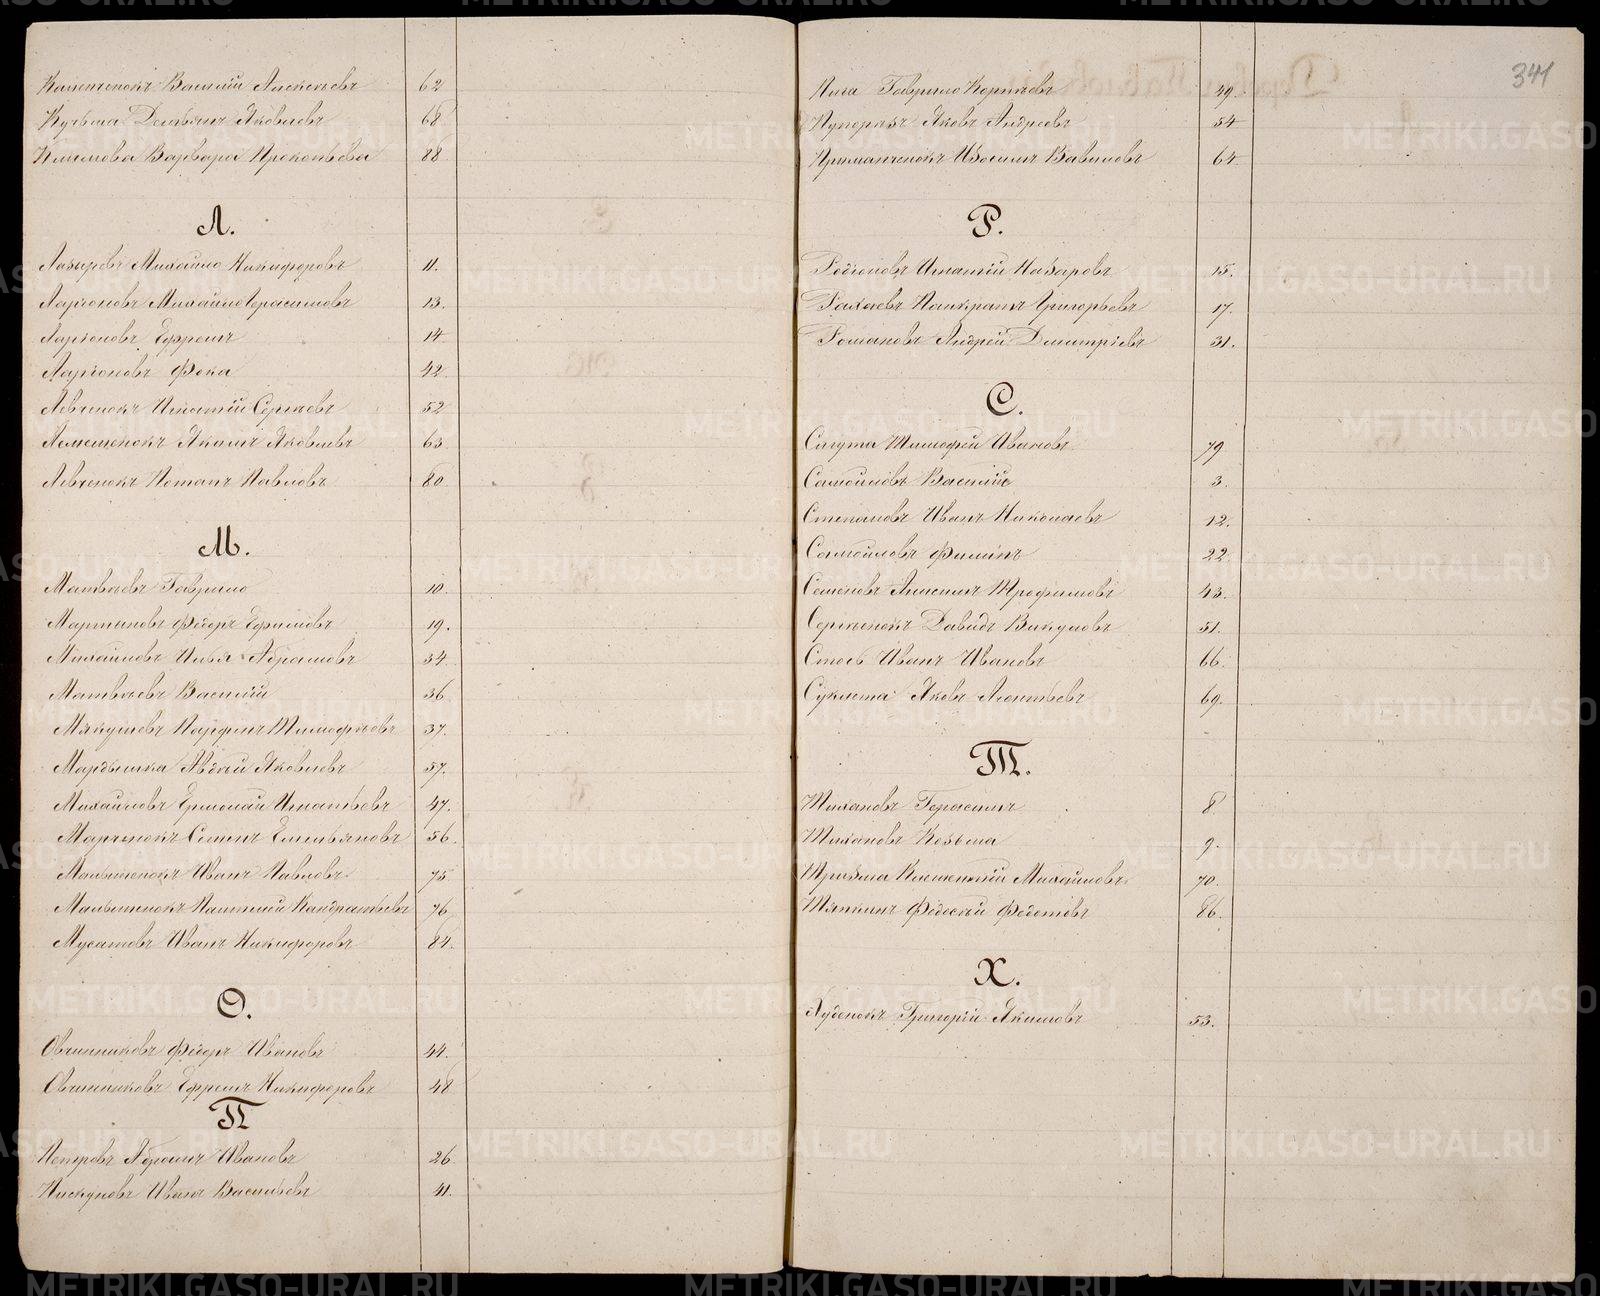 Василій Алексѣевъ 62
Кузьма Демьянъ Яковлевъ 68
Климова Варвара Прокопьева 88
Л.
Лазаревъ Михайло Никифоровъ 11.
Ларіоновъ Михайло Герасимовъ 13.
Ларіоновъ Ефремъ 14
Ларіоновъ Фока 42
Левченокъ Игнатій Сергѣевъ 52
Лемешенокъ Якимъ Яковлевъ 63
Левченокъ Потапъ Павловъ 80
М.
Матвѣевъ Гаврило 10.
Мартиновъ Фёдоръ Ефимовъ 19.
Михайловъ Илья Абрамовъ 34
Матвѣевъ Василій 36
Мякушевъ Парфенъ Тимофѣевъ 37.
Авдѣй Яковлевъ 57.
Михайловъ Ермолай Игнатьевъ 47.
Марченокъ Семенъ Емельяновъ 56.
Малышенокъ Иванъ Павловъ 75
Малышенокъ Кандратьевъ 76
Мусатовъ Иванъ Никифоровъ 84.
О.
Овчинниковъ Фёдоръ Ивановъ 44.
Овчинниковъ Ефремъ Никифоровъ 48
П
Петровъ Абрамъ Ивановъ 26
Пискуновъ Иванъ Васильевъ 41.
341
Гаврило Корнѣевъ 49.
Яковъ Андреевъ 54
Вавиловъ 64
Р.
Родіоновъ Игнатій Назаровъ 15.
Панкратъ Григорьевъ 17.
Романовъ Андрей Дмитріевъ 31.
С.
Тимофей Ивановъ 79
Самойловъ Василій 3.
Степановъ Иванъ Николаевъ 12.
Самойловъ Филипъ 22
Семеновъ Трофимовъ 43.
Сергѣенокъ Давидъ Викуловъ 51.
Иванъ Ивановъ 66.
Яковъ Леонтьевъ 69.
Т.
Тихановъ Герасимъ 8
Тихановъ Козьма 9.
Клементій Михайловъ 70.
Тяпкинъ Федосѣй Федотовъ 86.
Х.
Худенокъ Григорій Якимовъ 53.
METRIKI.GASO-URAL.RU